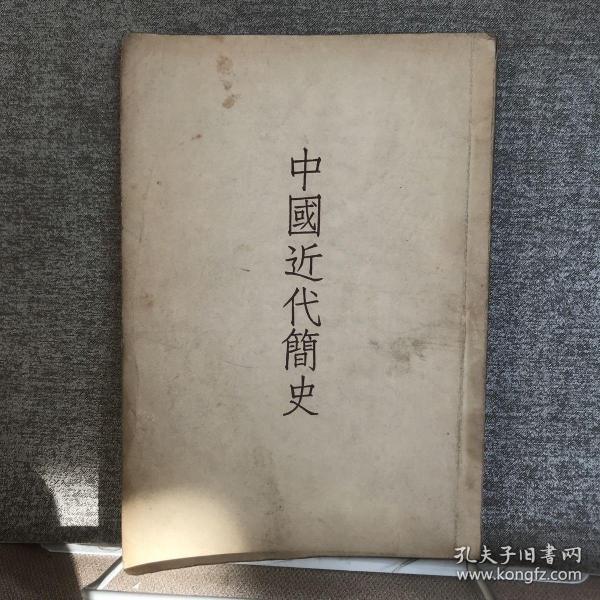 中國近代簡史
孔夫子旧書网
www.kongfz.com